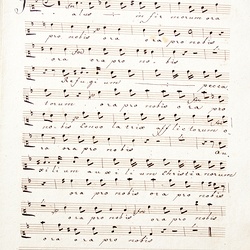 alus in fir morum ora
pro nobis ora ora pro nobis
ora ora pro no bis
Refugium pecca
torum ora pro nobis ora pro
nobis conso latrix afflictorum o
ra ora pro nobis au
xilium auxilium christianorum
ora pro nobis ora pro nobis
ora pro nobis ora pro nobis
ora pro nobis